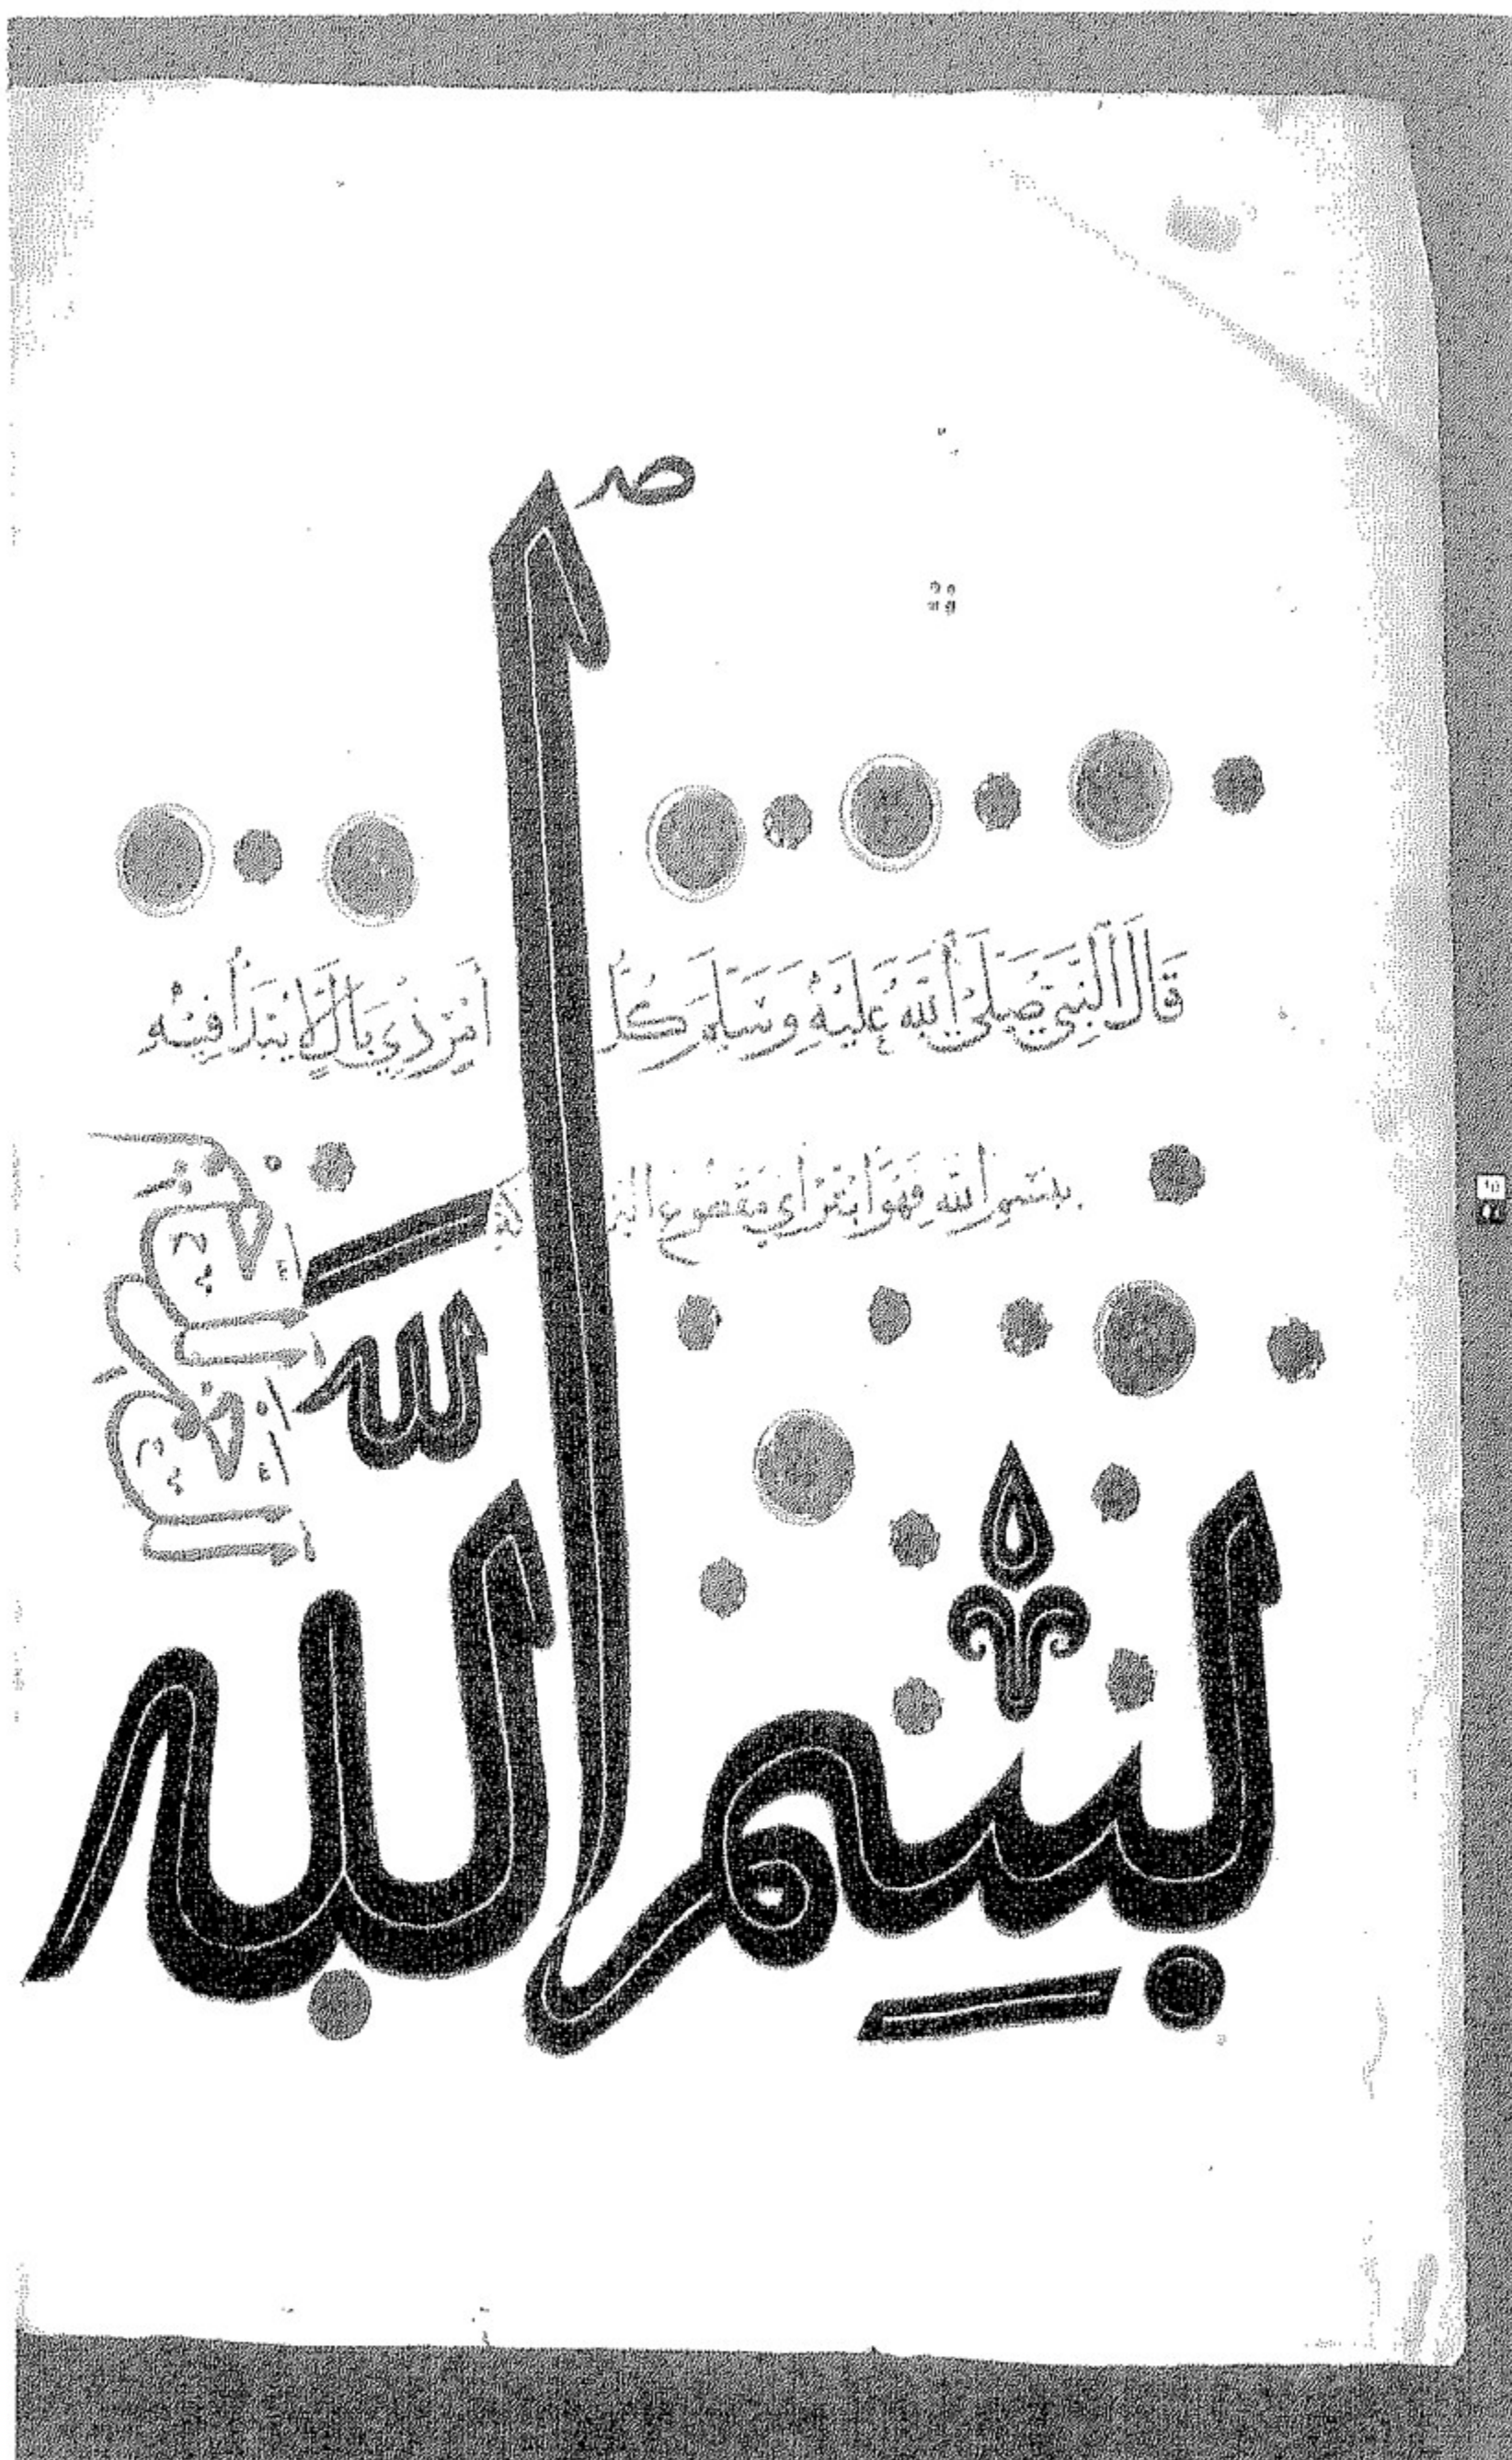 صد
قَالَ النَّبِيُّ صَلَّى اللَّهُ عَلَيْهِ وَسَلَّمَ كُلُّ أَمْرٍ ذِي بَالٍ لَا يُبْدَأُ فِيْهِ
بِسْمِ اللهِ فَهُوَ أَبْتَرُ أَي مَقْطُوعُ البركة
لله
بِسْمِ الله